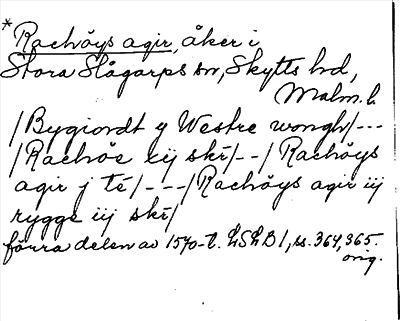 * Rachöys agir, åker i
Stora Slågarps sn, Skytts hd,
Malm. l.
/Bygiordt y Westre wongh/---
/Rachöe xij skr/--/Rachöys
agir j té/---/Rachöys agir iij
rygge iij skr/
förra delen av 1570-t. LSLB 1, ss. 364, 365.
orig.